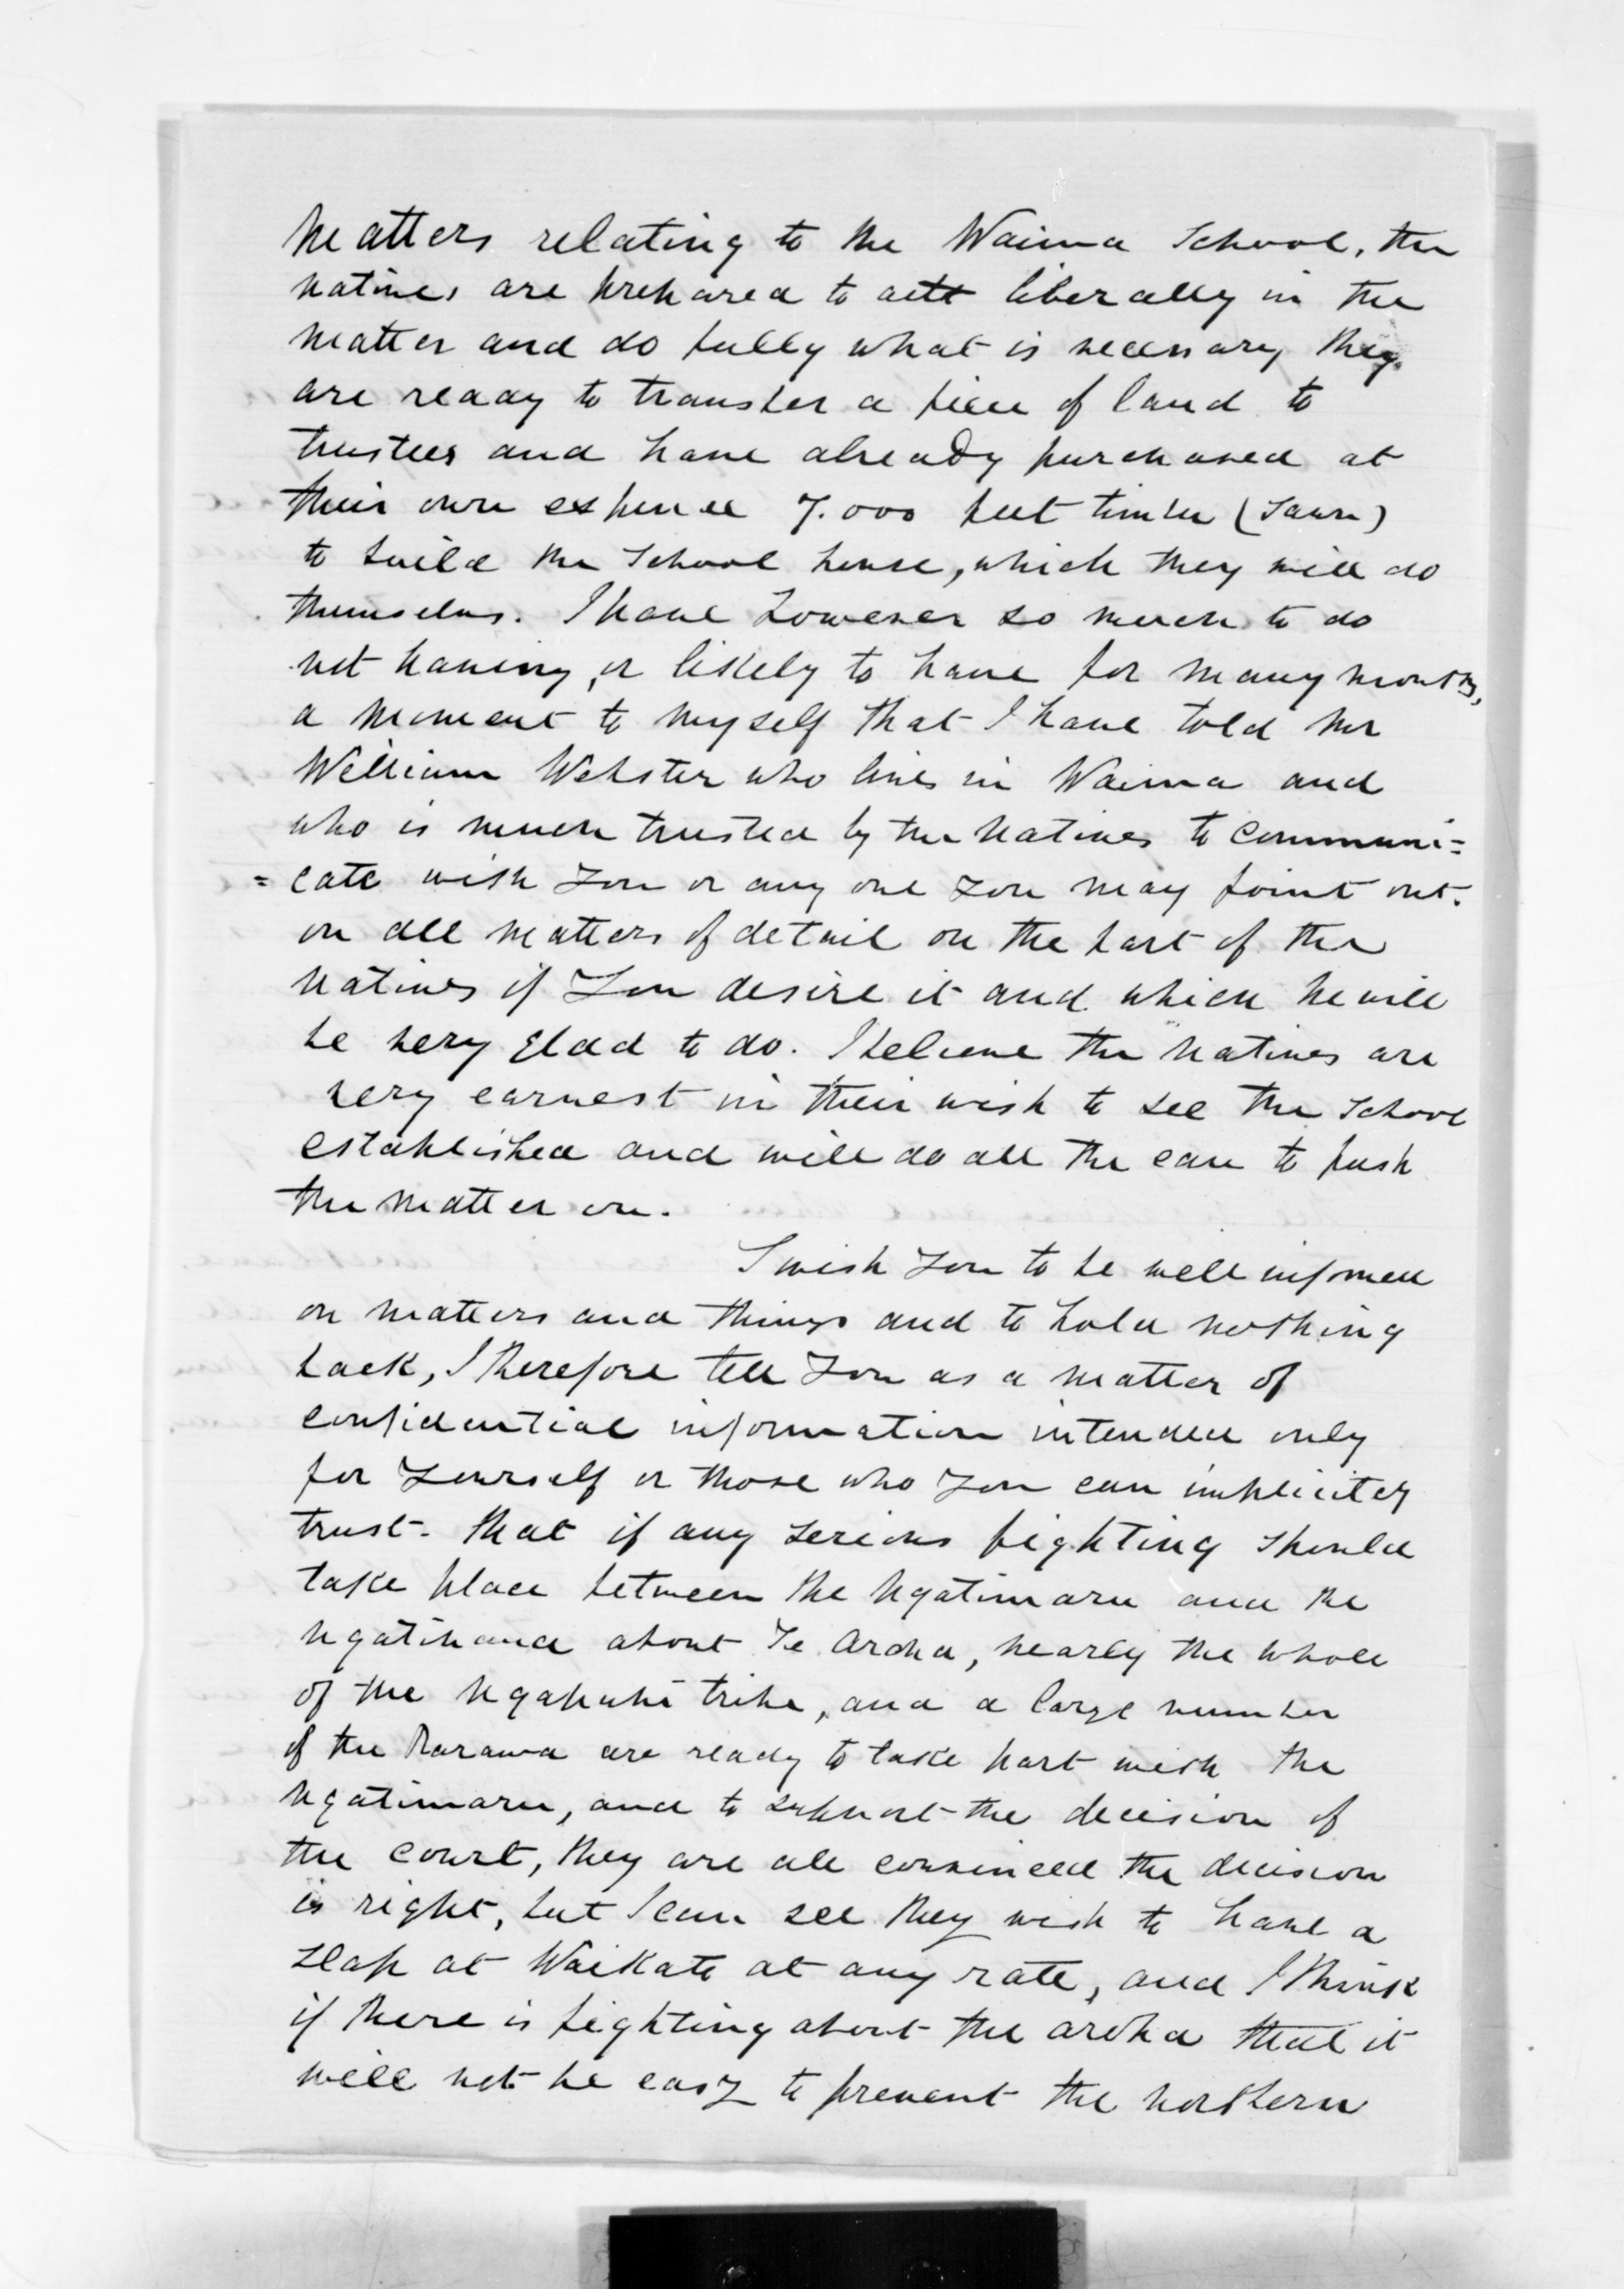 Matters relating to the Waima School, the
natives are prepared to act liberally in the
matter and do fully what is necessary they
are ready to transfer a piece of land to
trustees and have already purchased at
their own expense 7.000 feet timber (sawn)
to build the School house, which they will do
themselves. I have however so much to do
not having, or likely to have for many months,
a moment to myself that I have told Mr
William Webster who lives in Waima and
who is much trusted by the natives to communi=
=cate with you or any one you may point out.
on all matters of detail on the part of the
natives if you desire it and which he will
be very glad to do. I believe the natives are
very earnest in their wish to see the School
established and will do all the can to push
the matter on.
I wish you to be well informed
on matters and things and to hold nothing
back, I therefore tell you as a matter of
confidential information intended only
for yourself or those who you can implicitly
trust - that if any serious fighting should
take place between the Ngatimaru and the
Ngatihaua about Te Aroha, nearly the whole
of the Ngapuhi tribe, and a large number
of the Rarawa are ready to take part with the
Ngatimaru, and to support the decision of
the court, they are all convinced the decision
is right, but I can see they wish to have a
slap at Waikato at any rate, and I think
if there is fighting about the aroha that it
will not be easy to prevent the northern